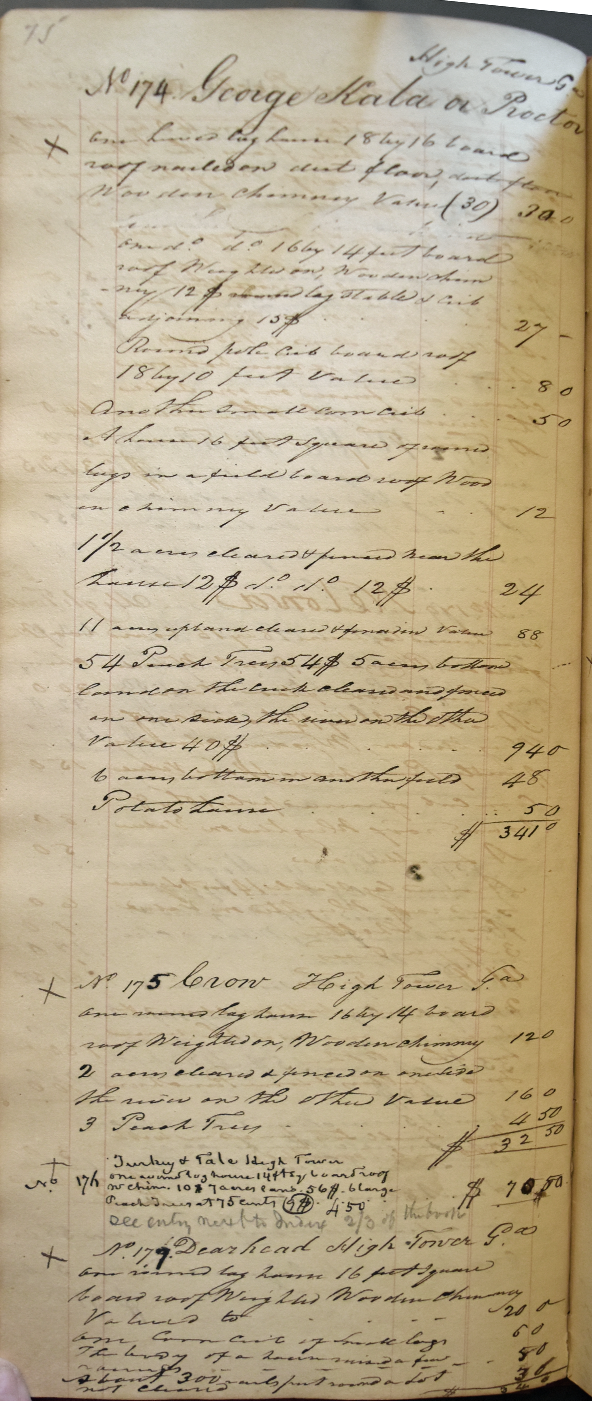 75
High Tower Ga
No 174. George Kala or Proctor
one hewed log house 18 by 16 board
roof nailed on dirt floor,
Wooden Chimney Value (30) 30 0
one do do 16 by 14 feet board
roof Weighted on, Wooden chim
-ney 12$ round log stable & crib
adjoining 15$ 27 -
Round pole crib board roof
18 by 10 feet Value 8 0
Another small corn crib 5 0
A house 16 feet Square of round
logs in a field board roof Wood
en chimney Value 12
1 1/2 acres cleared & fenced near the
house 12$ do do 12$ 24
11 acres upland cleared & fenced in Value 88
54 Peach Trees 54$ 5 acres bottom
land on the creek cleared and fenced
on one side, the river on the other
Value 40$ 94 0
6 acres bottom in another field 48
Potato house 5 0
$ 341 0
No 175 Crow High Tower Ga
one round log house 16 by 14 board
roof Weighted on, Wooden chimney 12 0
2 acres cleared & fenced on one side
the river on the other Value 16 0
3 Peach Trees 4 50
$ 32 50
Turkey & Tale High Tower
No 176 one round log house 14 ft by board roof
w chim. 10$ 7 acres 56$ 6 large
Peach trees at 75 cents 4 50
$ 70 50
see entry next to Index 2/3 of the book
No 179 Dearhead High Tower Ga
one round log house 16 feet Square
board roof Weighted Wooden Chimney
Valued to 20 0
one Corn Crib of small logs 6 0
The body of a house raised a few
about 300 rails put round a lot
not cleared